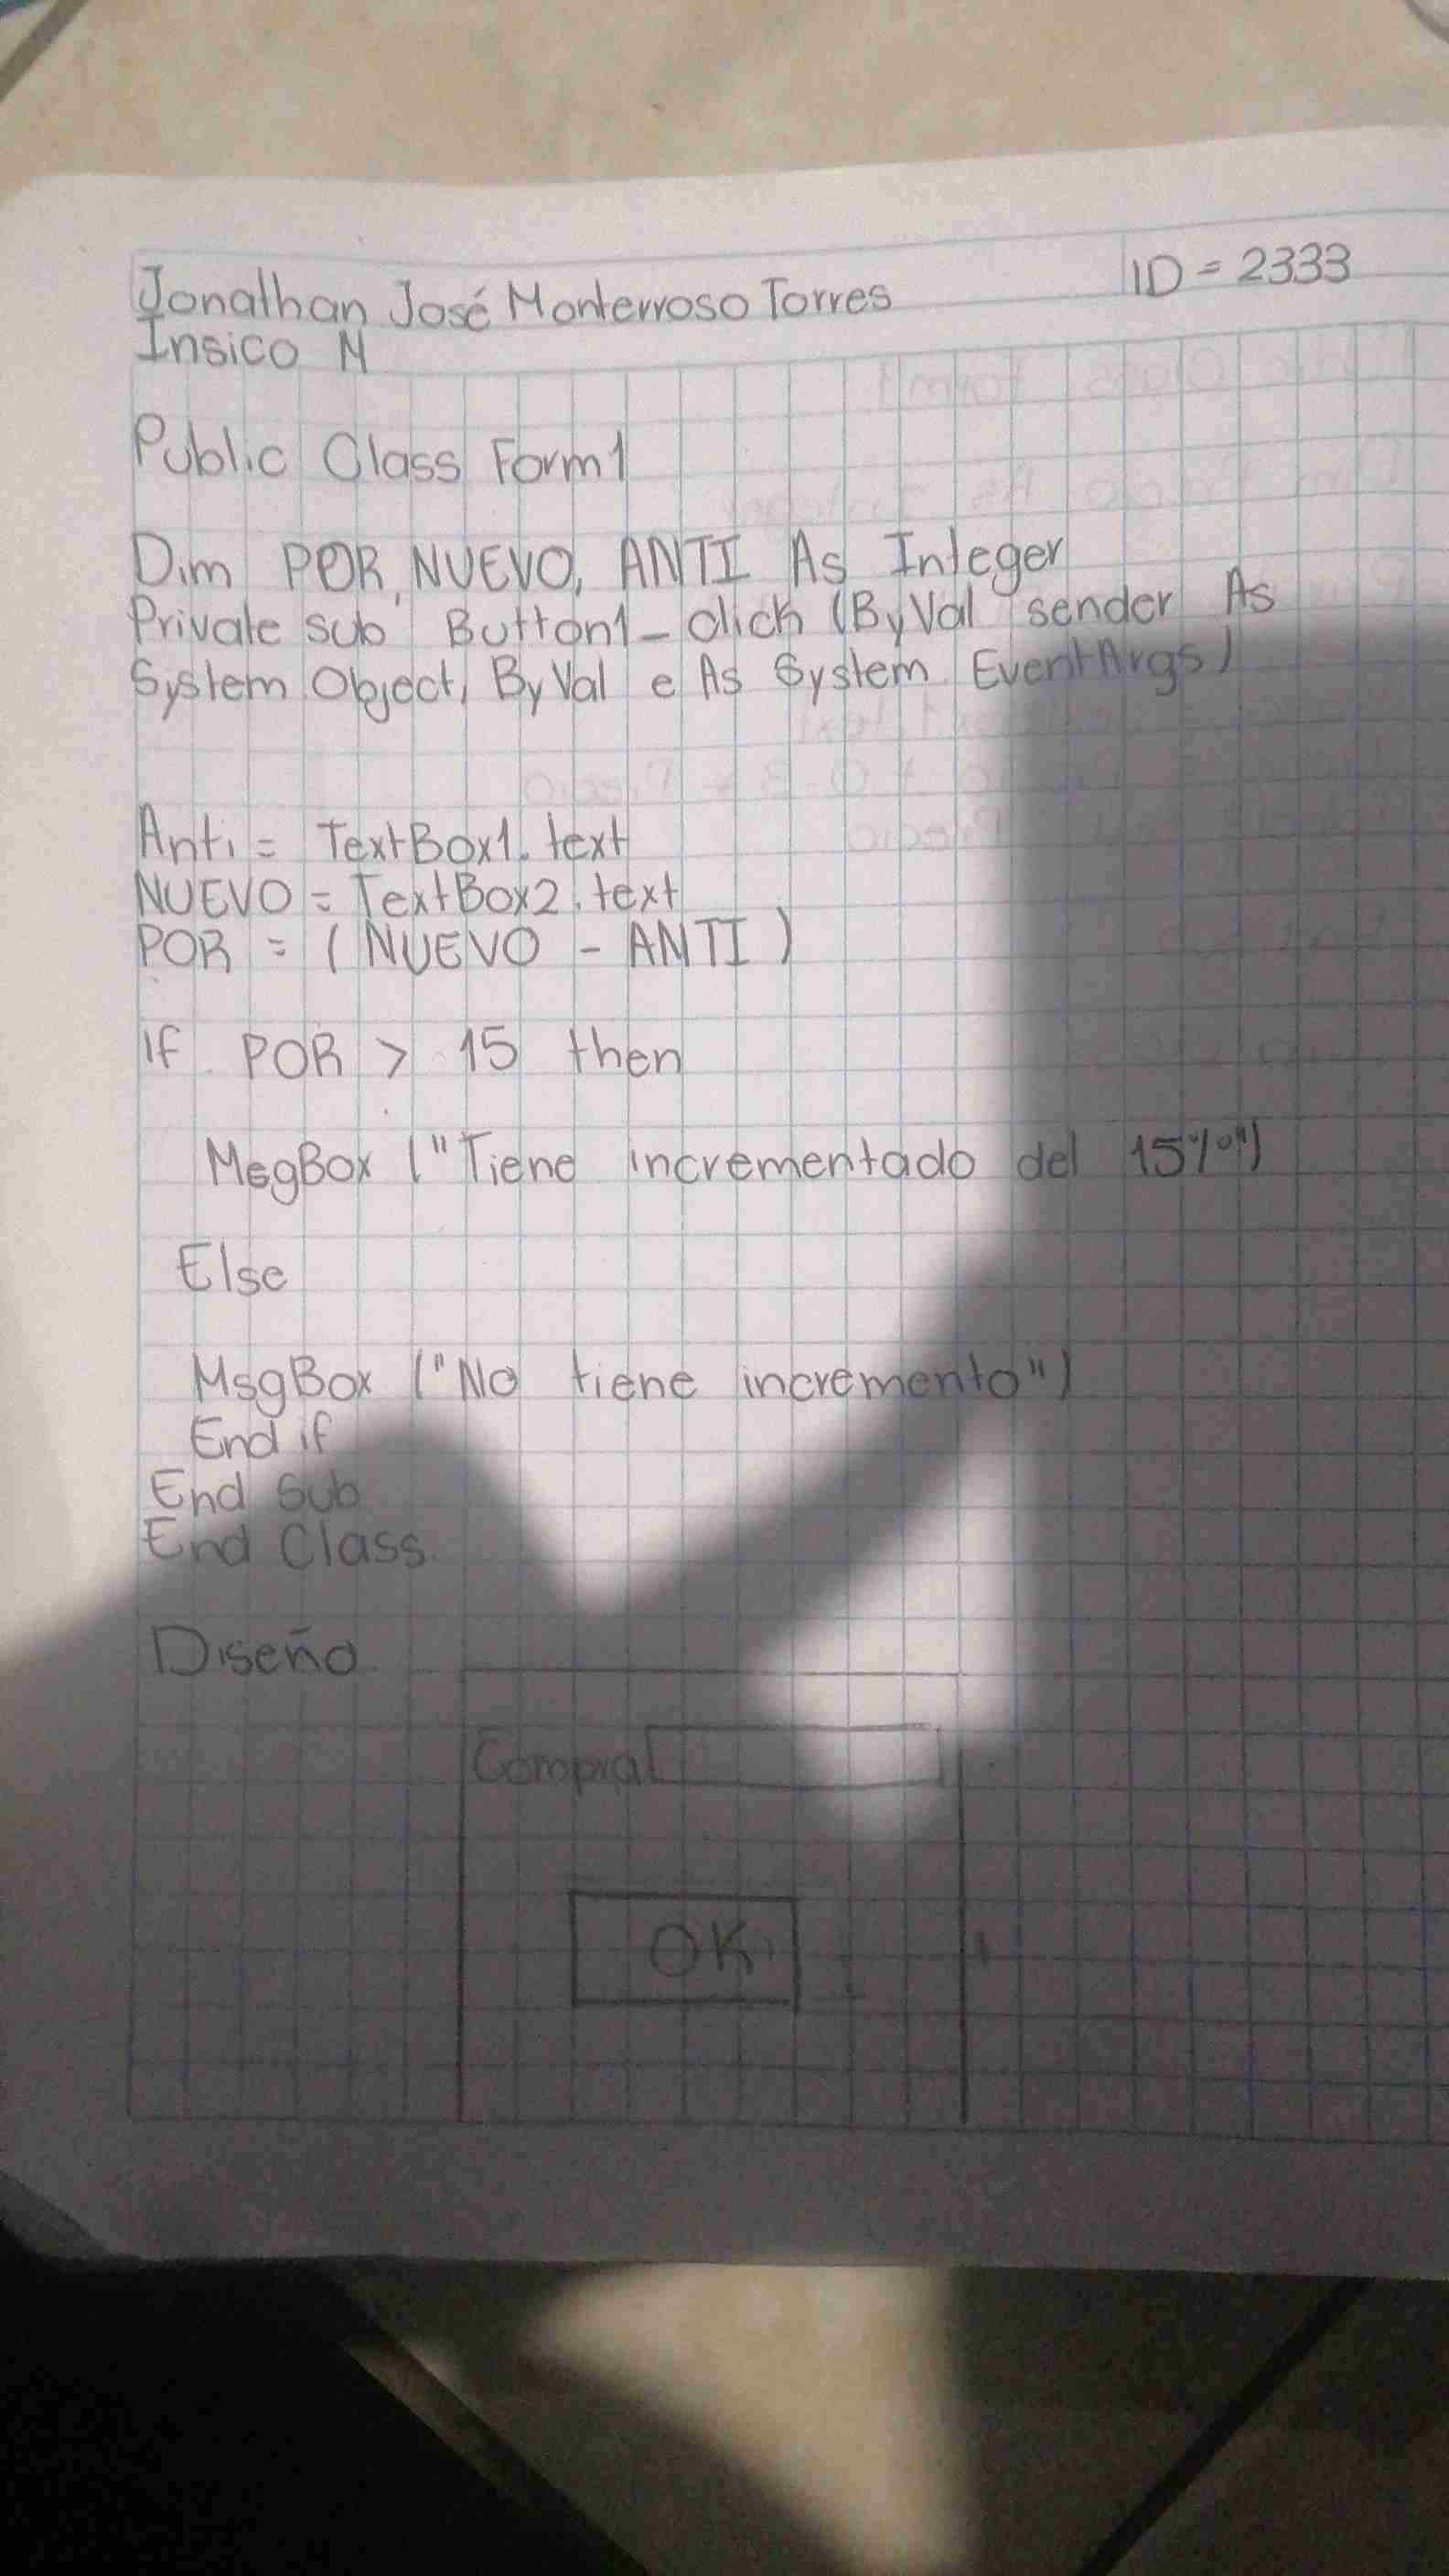 Jonathan José Monterroso Torres
ID = 2333
Insico M
Public Class Form1
Dim POR, NUEVO, ANTI As Integer
Private sub Button1_click (ByVal sender As
System Object, ByVal e As System. EventArgs)
Anti = TextBox1. text
NUEVO = TextBox2. text
POR = (NUEVO - ANTI)
If POR > 15 then
MsgBox ("Tiene incrementado del 15%")
Else
MsgBox ("No tiene incremento")
End if
End Sub
End Class.
Diseño
Compra
OK